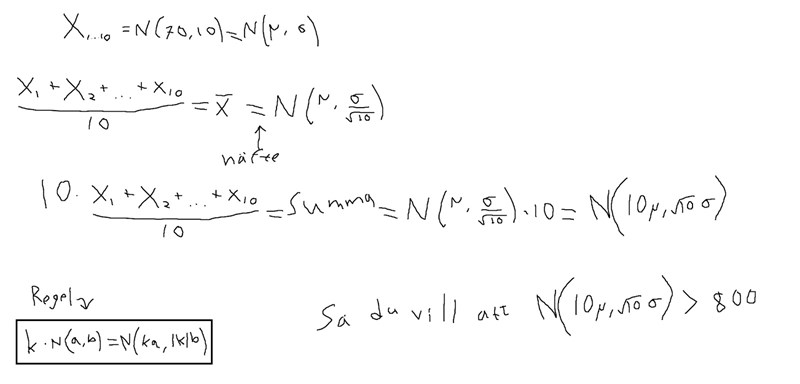 X₁...₁₀ = N(70,10) = N(μ, σ)
(X₁ + X₂ + ... + X₁₀)/10 = x̄ = N(μ, σ/√10)
↑
10 · (X₁ + X₂ + ... + X₁₀)/10 = Summa = N(μ, σ/√10) · 10 = N(10μ, √10 σ)
Regel ↘
k · N(a,b) = N(ka, |k|b)
Så du vill att N(10μ, √10 σ) > 800